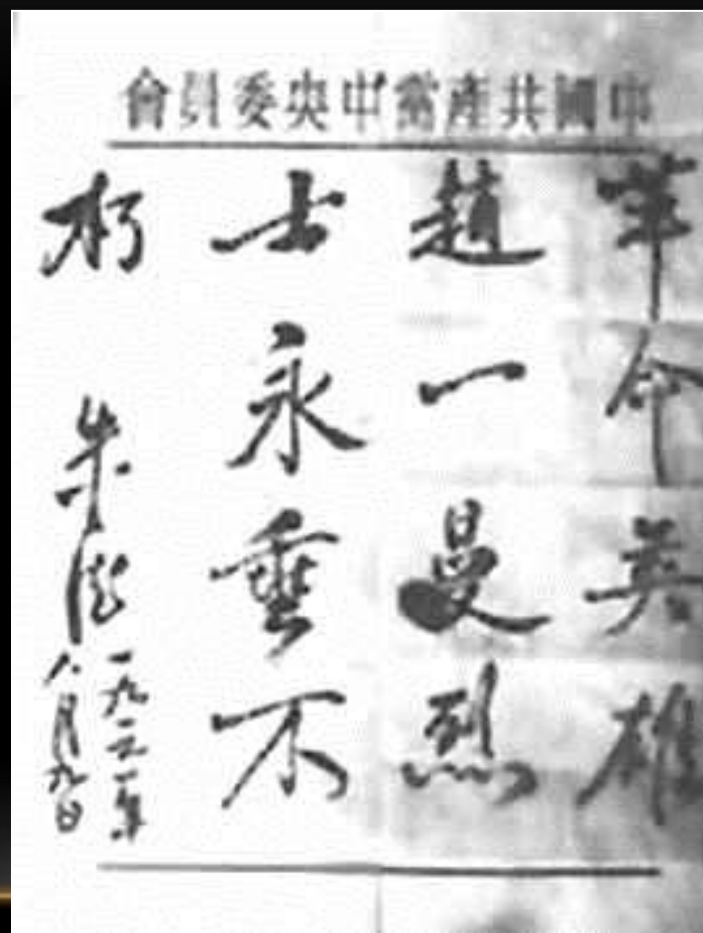 中國共產黨中央委員會
革命英雄
趙一曼烈
士永垂不
朽
朱德
八月九日